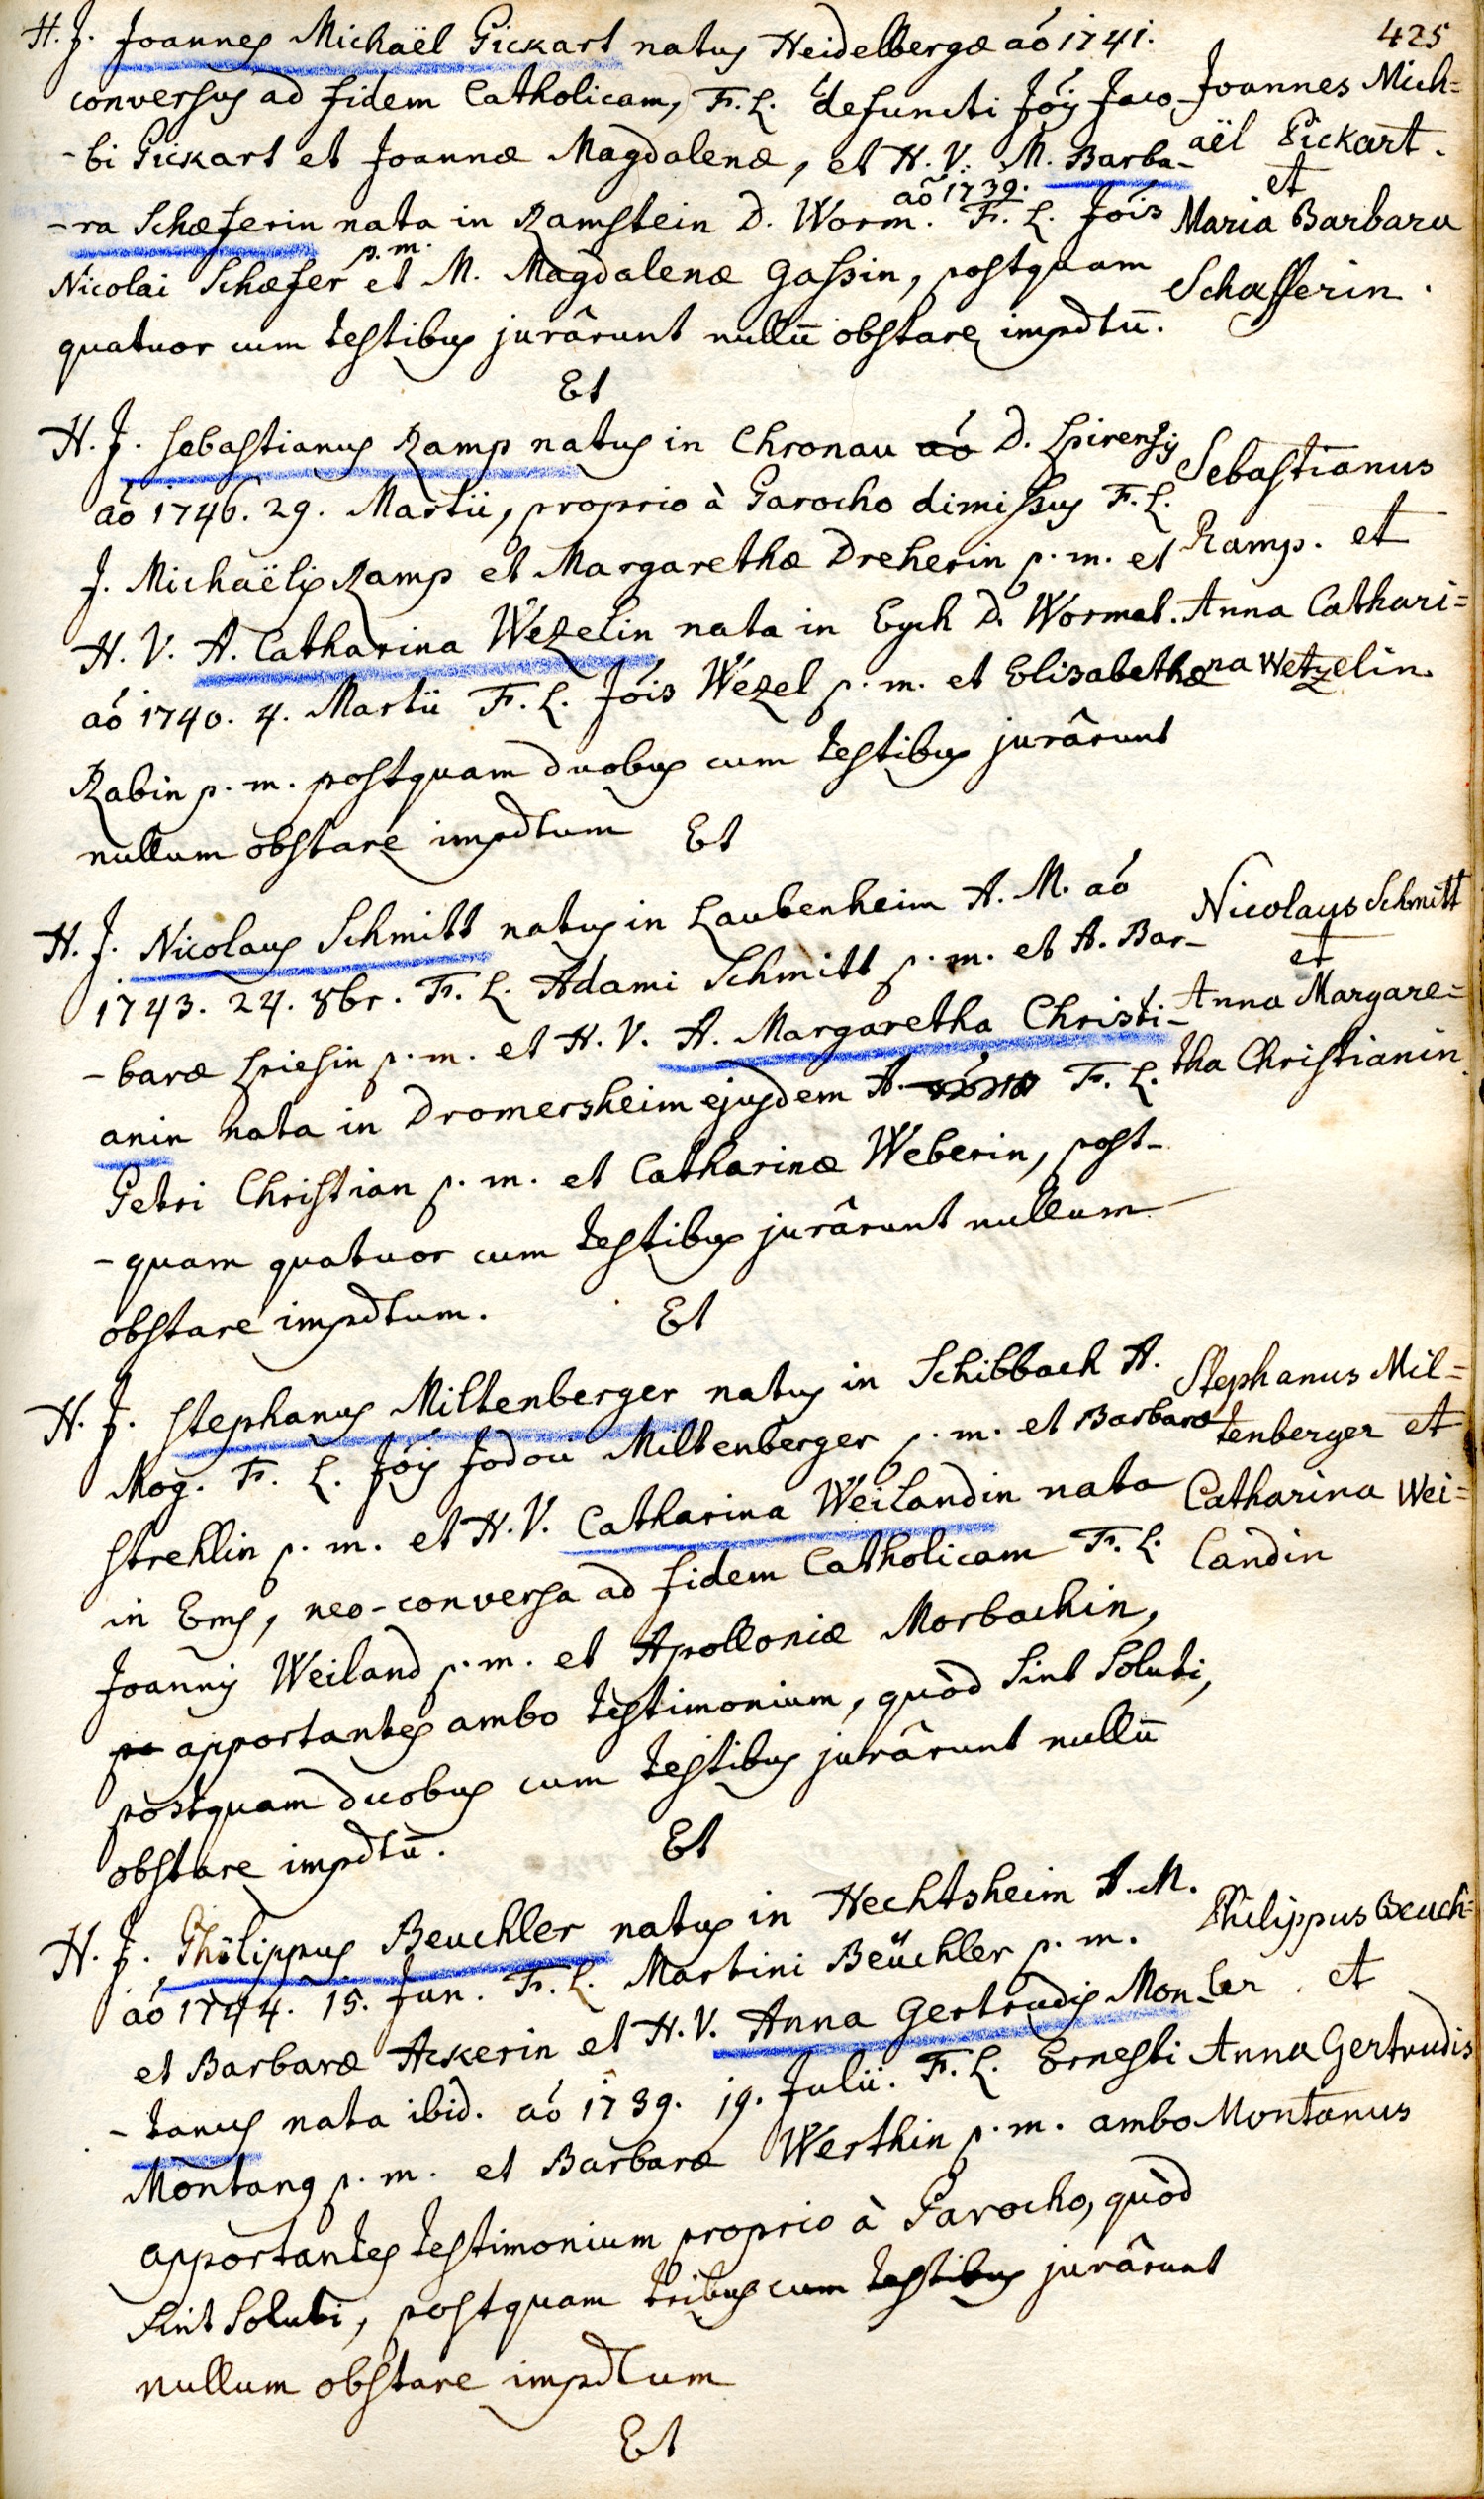 425
H. J. Joannes Michaël Pickart natus Heidelbergæ aó 1741.
conversus ad fidem Catholicam, F. L. defuncti Jóis Jaco-
-bi Pickart et Joannæ Magdalenæ, et H. V. M. Barba-
aõ 1739.
-ra Schæferin nata in Ramstein D. Worm. F. L. Jóis
p. m.
Nicolai Schæfer et M. Magdalenæ Gassin, postquam
quatuor cum testibus jurârunt nullū obstare impdtū.
Joannes Mich=
aël Pickart.
et
Maria Barbara
Schæfferin.
Et
H. J. Sebastianus Ramp natus in Chronau aó D. Spirensis
aó 1746. 29. Martii, proprio à Parocho dimissus F. L.
J. Michaëlis Ramp et Margarethæ Dreherin p. m. et
H. V. A. Catharina Wezelin nata in Eych D. Wormat.
aó 1740. 4. Martii F. L. Jóis Wezel p. m. et Elisabethæ
Rabin p. m. postquam duobus cum testibus jurârunt
nullum obstare impdtum
Sebastianus
Ramp. et
Anna Cathari=
na Wetzelin
Et
H. J. Nicolaus Schmitt natus in Laubenheim A. M. aó
1743. 24. 8br. F. L. Adami Schmitt p. m. et A. Bar-
-baræ Spiesin p. m. et H. V. A. Margaretha Christi-
anin nata in Dromersheim ejusdem A. F. L.
Petri Christian p. m. et Catharinæ Weberin, post-
-quam quatuor cum testibus jurârunt nullum
obstare impdtum.
Nicolaus Schmitt
et
Anna Margare=
tha Christianin.
Et
H. J. Stephanus Miltenberger natus in Schibbach A.
Mog. F. L. Jóis Jodoci Miltenberger p. m. et Barbaræ
Strehlin p. m. et H. V. Catharina Weilandin nata
in Ems, neo-conversa ad fidem Catholicam F. L.
Joannis Weiland p. m. et Apolloniæ Morbachin,
po apportantes ambo testimonium, quòd sint soluti,
postquam duobus cum testibus jurârunt nullū
obstare impdtū.
Stephanus Mil=
tenberger et
Catharina Wei=
landin
Et
H. J. Philippus Beuchler natus in Hechtsheim A. M.
aó 1744. 15. Jan. F. L. Martini Beüchler p. m.
et Barbaræ Ackerin et H. V. Anna Gertrudis Mon-
-tanus nata ibid. aó 1739. 19. Julii. F. L. Ernesti
Montanus p. m. et Barbaræ Werthin p. m. ambo
apportantes testimonium proprio à Parocho, quòd
sint soluti, postquam tribus cum testibus jurârunt
nullum obstare impdtum
Philippus Beuch=
ler. et
Anna Gertrudis
Montanus
Et